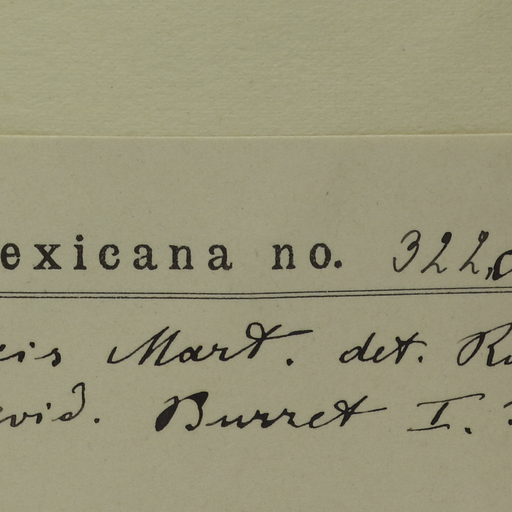 exicana no. 322,
eis Mart. det.
evid. Burret I.